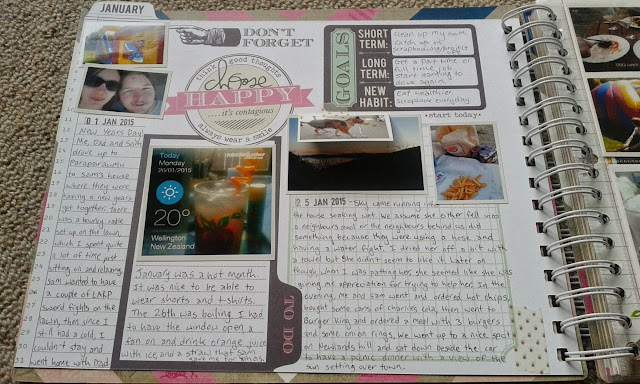 JANUARY
DON'T
FORGET
think good thoughts
choose
HAPPY
....it's contagious
always wear a smile
GOALS
SHORT
TERM:
clean up my room
catch up on
scrapbooking/project
life
LONG
TERM:
Get a part time or
full time job
start wanting to
drive again
NEW
HABIT:
Eat healthier
Scrapbook everyday
• start today •
01 JAN 2015
New Years Day
Me, Dad and
drove up to
Paraparaumu
to Sam's house
where they were
having a new years
get together. there
was a bouncy castle
set up on the lawn,
which I spent quite
a lot of time just
sitting on and relaxing.
Sam wanted to have
a couple of LARP
sword fights on the
lawn, then since I
felt I had a cold, I
couldn't stay and
went home with Dad
11
12
13
14
15
16
17
18
19
20
21
22
23
24
25
26
27
28
29
30
31
Today
Monday
26/01/2015
20°
Wellington
New Zealand
January was a hot month.
It was nice to be able to
wear shorts and t-shirts.
The 26th was boiling. I had
to have the window open, a
fan on and drink orange juice
with ice and a straw that Sam
gave me for xmas.
TO DO
25 JAN 2015
Sky came running in
the house soaking wet. We assume she either fell into
a neighbours pool or the neighbours behind us did
something because they were using a hose and
having a water fight. I dried her off a bit with
a towel but she didn't seem to like it. Later on
though, when I was patting her she seemed like she was
giving me appreciation for trying to help her. In the
evening, me and Sam went and ordered hot chips,
bought some cans of Charlies cola, then went to
Burger King and ordered a meal with 3 burgers
and some onion rings, we went up to a nice spot
on Newlands hill and sat down beside the car
to have a picnic dinner with a view of the
sun setting over town.